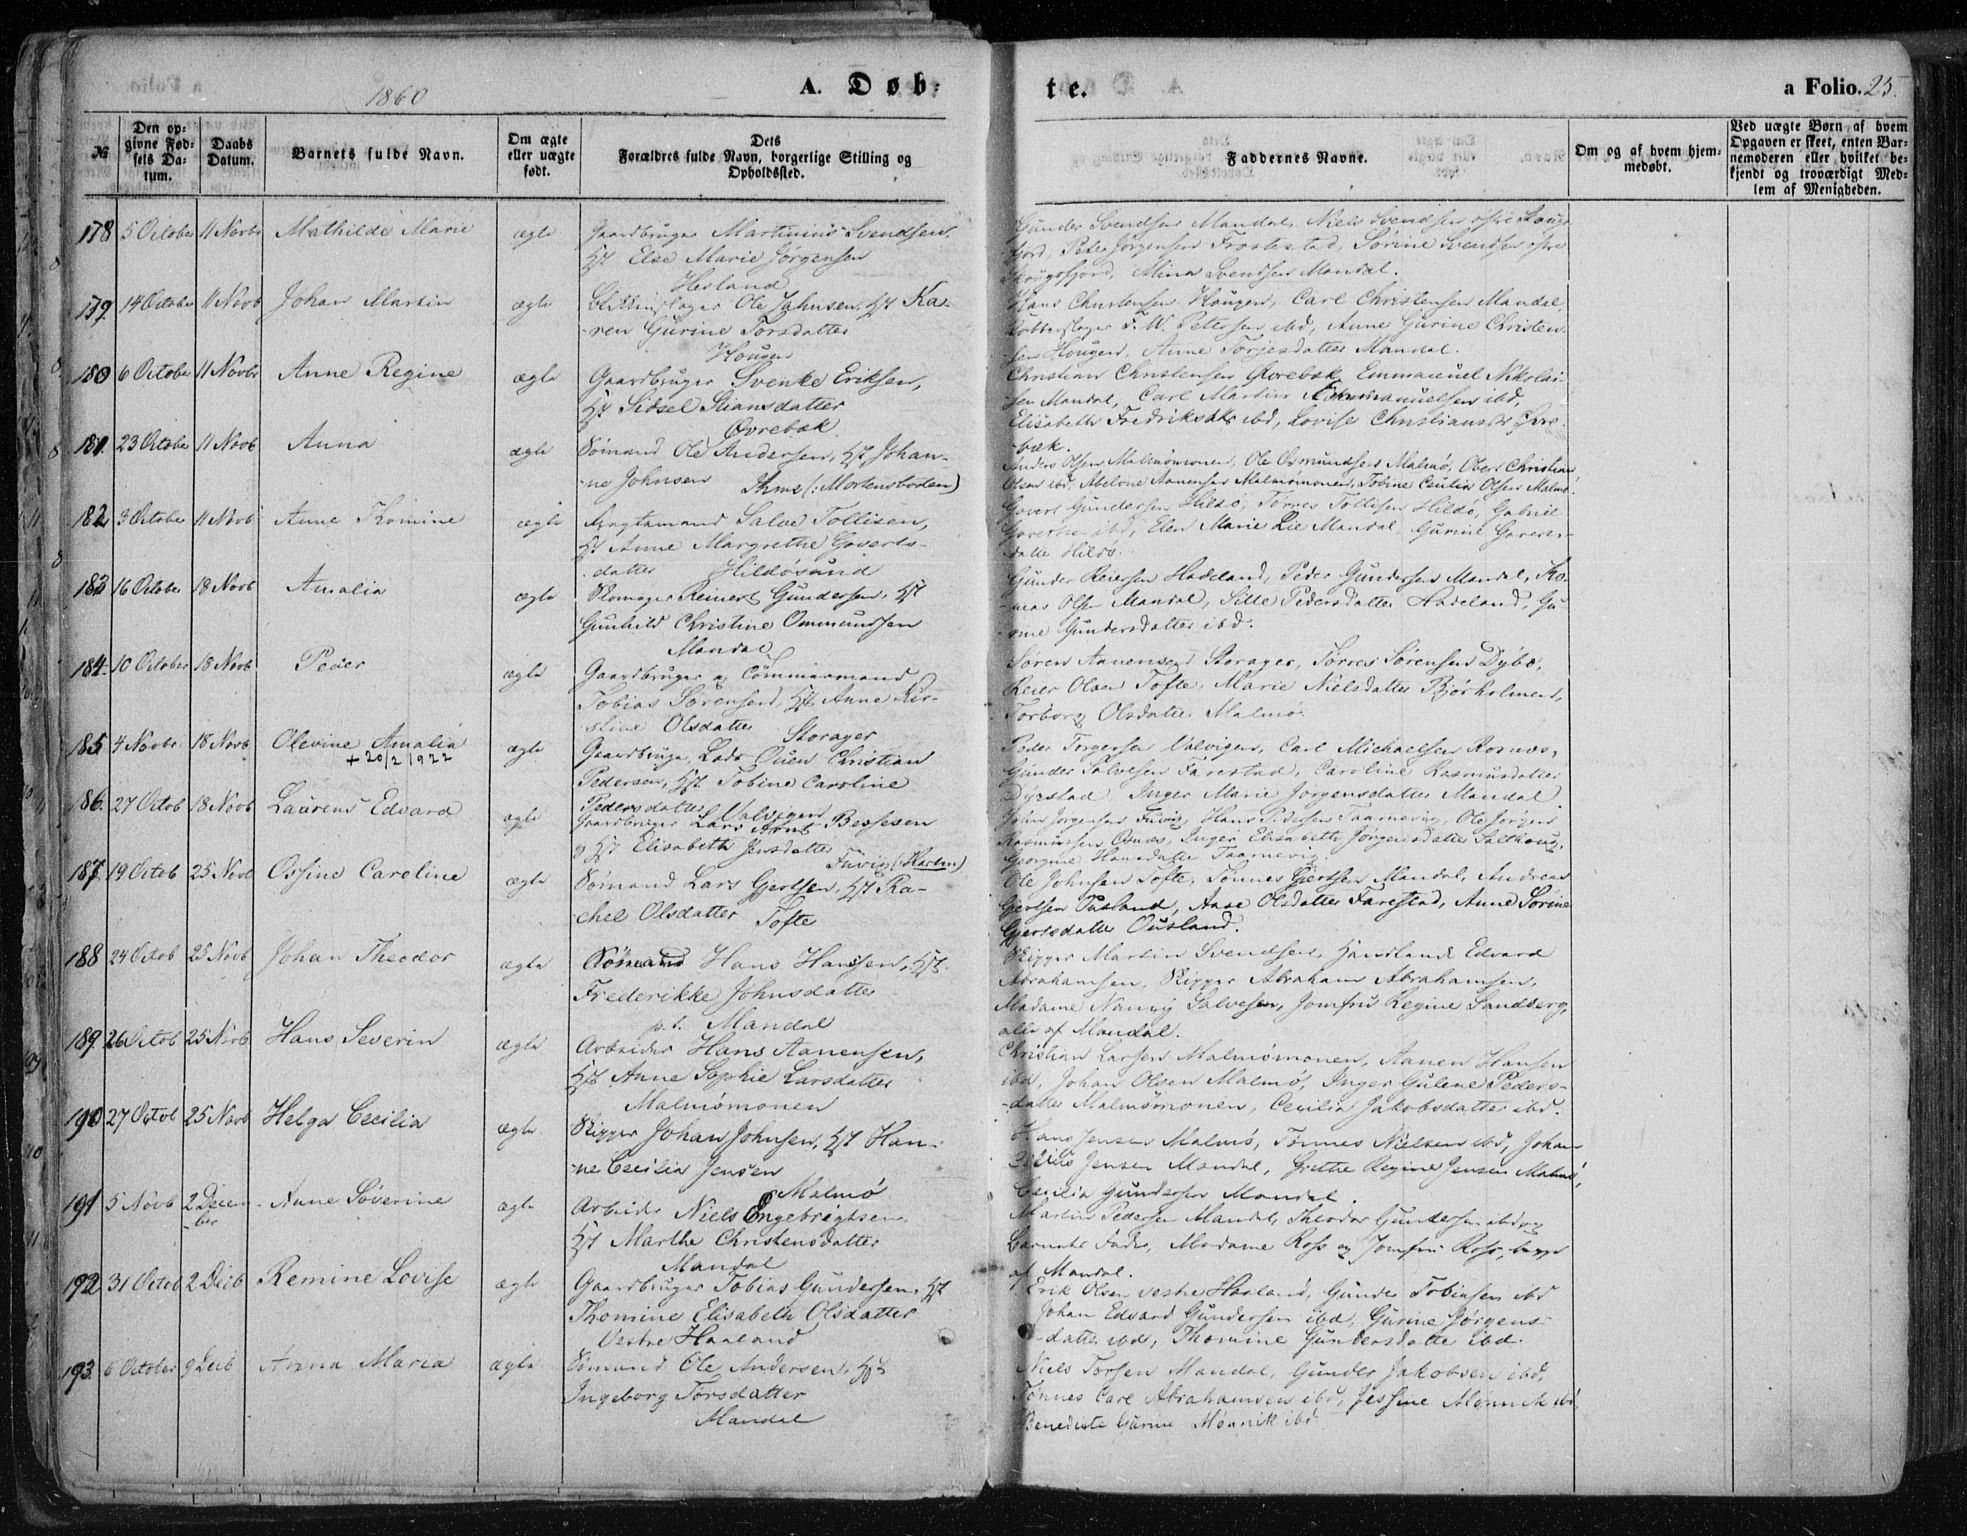 1860
A. Døb-
te.
a Folio. 25.
№
Den op-
givne Fød-
sels Da-
tum.
Daabs
Datum.
Barnets fulde Navn.
Om ægte
eller uægte
født.
Dets
Forældres fulde Navn, borgerlige Stilling og
Opholdssted.
Faddernes Navne.
Om og af hvem hjem-
medøbt.
Ved uægte Børn af hvem
Opgaven er skeet, enten Bar-
nemoderen eller hvilket be-
kjendt og troværdigt Med-
lem af Menigheden.
178 5 October 11 Novbr Mathilde Marie ægte Gaardbruger Martinius Svendsen,
Hst Else Marie Jørgensen
Hesland
Gunder Svendsen Mandal, Niels Svendsen østre Skougs-
fjord, Peder Jørgensen Frostestad, Sørine Svendsen østre
Skougsfjord, Mina Svendsen Mandal.
179. 14 October 11 Novb Johan Martin ægte Ole Johnsen, Hst Ka-
ren Gurine Torsdatter
Hougen
Hans Christensen Hougen, Carl Christensen Mandal,
F. W. Petersen ibd, Anne Gurine Christen-
sen Hougen, Anne Torjesdatter Mandal.
180 6 October 11 Novbr Anne Regine ægte Gaardbruger Svenke Eriksen,
Hst Sidsel Stiansdatter
Øvrebæk
Christian Christensen Øvrebæk, Emmanuel Nikolai-
sen Mandal, Carl Martin Emmanuelsen ibd,
Elisabeth Fredriksdtr ibd, Lovise Christiansdtr Øvre-
bæk.
181. 23 October 11 Novb Anna ægte Sømand Ole Andersen, Hst Johan-
ne Johnsen (: Mortensboden)
Anders Olsen Malmømonen, Ole Osmundsen Malmø, Obert Christian
Olsen ibd, Abelone Aanensen Malmømonen, Tobine Cecilia Olsen Malmø.
182 3 October 11 Novb Anne Tomine ægte Salve Tollisen,
Hst Anne Margrethe Goverts-
datter Hildøsund
Govert Gundersen Hildø, Torres Tollisen Hildø, Gabriel
Govertsen ibd, Elen Marie Lie Mandal, Gurine Goverts-
datter Hildø.
183 16 October 18 Novb Amalia ægte Skomager Reinert Gundersen, Hst
Gunhild Christine Ommundsen
Mandal
Gunder Reiersen Hadeland, Peder Gundersen Mandal, To-
mas Olsen Mandal, Sille Pedersdatter Hadeland, Gu-
rine Gundersdatter ibd.
184. 10 October 18 Novb Peder ægte Gaardbruger og Tømmermand
Tobias Sørensen, Hst Anne Kir-
stine Olsdatter Storager
Søren Aanensen Storager, Tørres Sørensen Dybo,
Reier Olsen Tofte, Marie Nielsdatter Bjørholmen,
Torborg Olsdatter Malmø.
185 4 Novbr. 18 Novb Olevine Amalia ægte Gaardbruger, Lods Ouen Christian
+ 20/2 1922
Pedersen, Hst Tobine Caroline
Pedersdatter Valvigen
Peder Torgersen Valvigen, Carl Michaelsen Rosnes,
Gunder Salvesen Farestad, Caroline Rasmusdatter
Dyrstad Inger Marie Jørgensdatter Mandal.
186. 27 Octob 18 Novb Laurens Edvard ægte Gaardbruger Lars Arnt Bessesen
og Hst Elisabeth Jensdatter
Fuvig (: Harkm)
John Jørgensen Fuvig, Hans Pedersen Taarnevig, Ole Jørgen
Rasmussen Osnes, Inger Elisabeth Jørgensdatter Salthoug,
Georgine Hansdatter Taarnevig.
187. 19 Octob 25 Novb Ossine Caroline ægte Sømand Lars Gjertsen, Hst Ra-
chel Olsdatter Tofte
Ole Johnsen Tofte, Tønnes Gjertsen Mandal, Andreas
Gjertsen Ousland, Aase Olsdatter Farestad, Anne Sørine
Gjertsdatter Ousland.
188 24 Octob 25 Novb Johan Theodor ægte Sømand Hans Hansen, Hst
Frederikke Johnsdatter
p.t. Mandal
Skipper Martin Svendsen, Edvard
Abrahamsen, Skipper Abraham Abrahamsen,
Madame Nancy Salvesen, Jomfru Regine Sandberg,
alle af Mandal.
189. 26 Octob 25 Novb Hans Severin ægte Arbeider Hans Aanensen,
Hst Anne Sophie Larsdatter
Malmømonen
Christian Larsen Malmømonen, Aanen Hansen
ibd, Johan Olsen Malmø, Inger Guline Peders-
datter Malmømonen, Cecilia Jakobsdatter ibd.
190 27 Octob 25 Novb Helga Cecilia ægte Skipper Johan Johnsen, Hst Han-
ne Cecilia Jensen
Malmø
Hans Jensen Malmø, Tønnes Nielsen ibd, Johan
Jensen Mandal, Grethe Regine Jensen Malmø,
Cecilia Gundersen Mandal.
191 5 Novb 2 Decem-
ber Anne Severine ægte Arbeider Niels Engebrigtsen,
Hst Marthe Christensdatter
Mandal
Martin Pedersen Mandal, Theodor Gundersen ibd og
Barnets Fader, Madame Ross og Jomfru Ross, begge
af Mandal.
192 31 Octob 2 Decb Remine Lovise ægte Gaardbruger Tobias Gundersen, Hst
Thomine Elisabeth Olsdatter
Vestre Haaland
Erik Olsen vestre Haaland, Gunder Tobiasen ibd
Johan Edvard Gundersen ibd, Gurine Jørgens-
datter ibd, Thomine Gundersdatter ibd.
193. 6 October 9 Decb Anna Maria ægte Sømand Ole Andersen, Hst
Ingeborg Torsdatter
Mandal
Niels Torsen Mandal, Gunder Jakobsen ibd,
Tønnes Carl Abrahamsen ibd, Jessine Mønnik ibd,
Benedicte Gurine Mønnik ibd